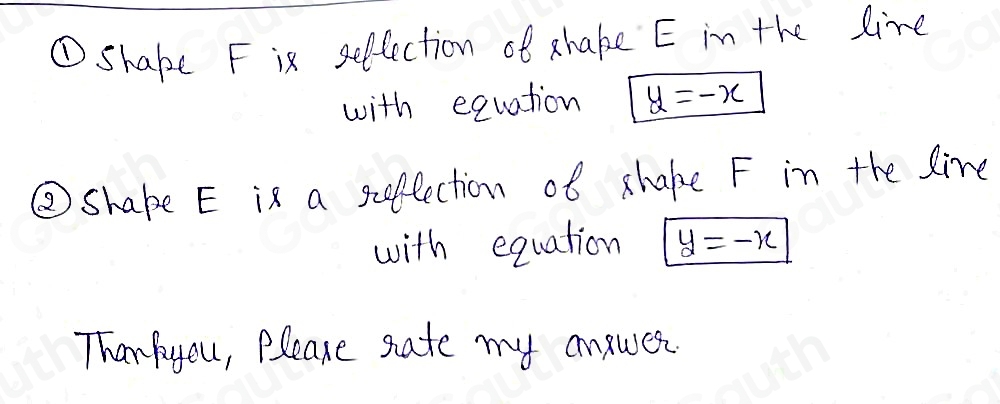 ① Shape F is reflection of shape E in the line
with equation y = -x
② Shape E is a reflection of shape F in the line
with equation y = -x
Thankyou, Please rate my answer.